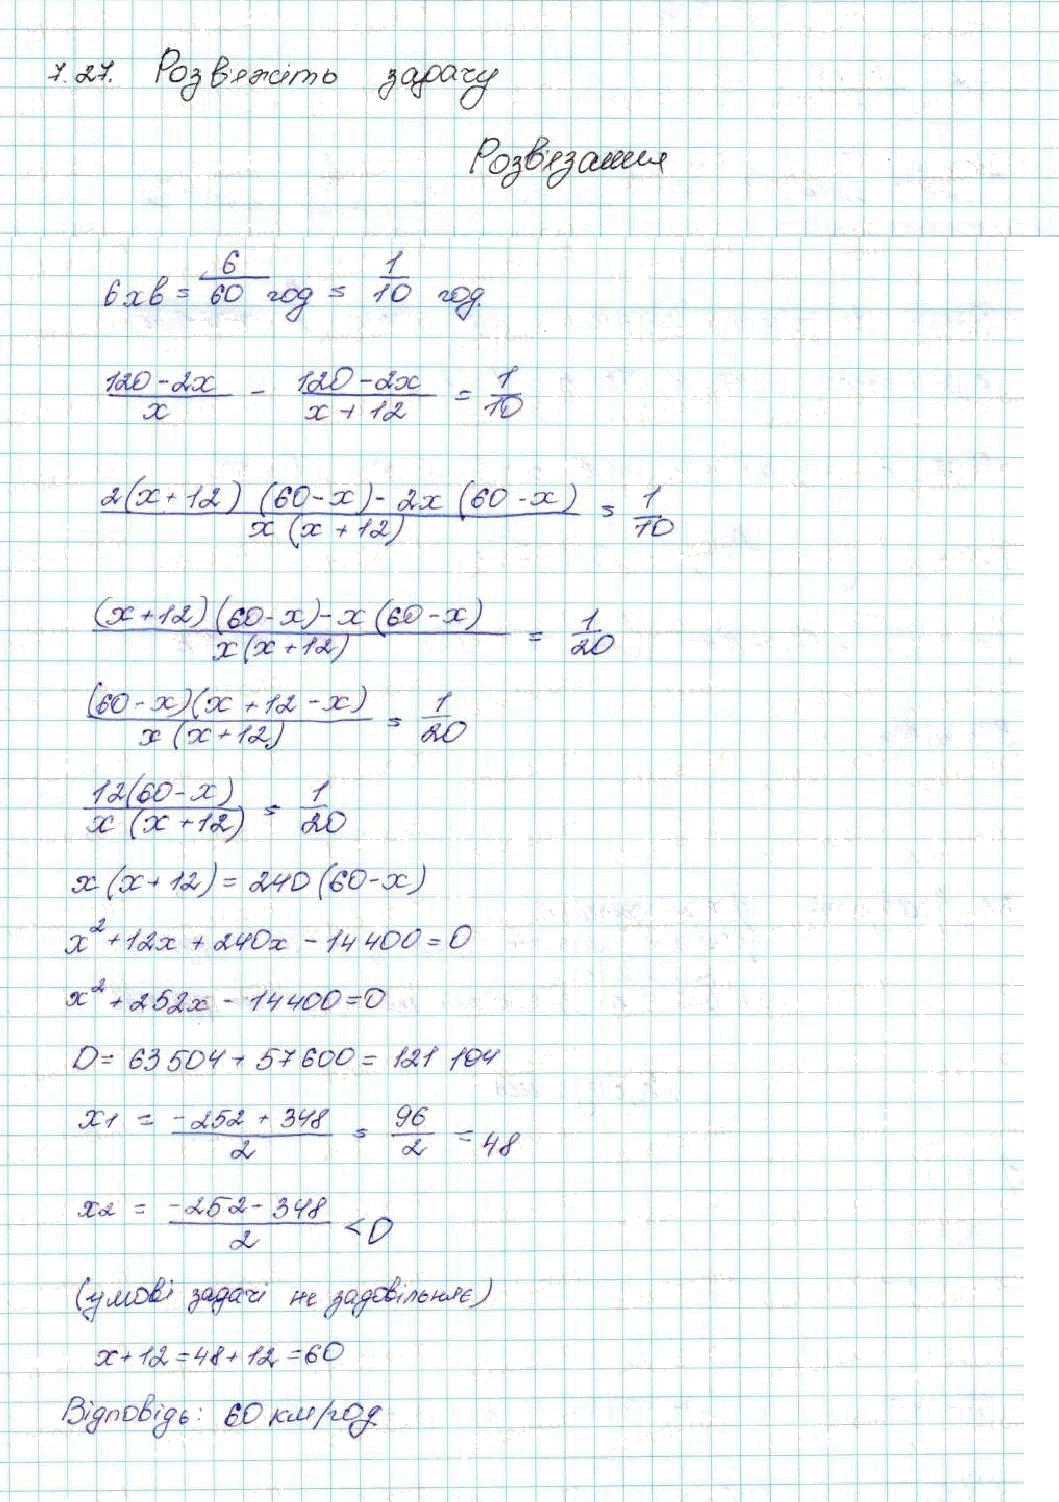 7.27. Розв'яжіть задачу
Розв'язання
6 хв = 6/60 год = 1/10 год.
(120-2x)/x - (120-2x)/(x+12) = 1/10
(2(x+12)(60-x)-2x(60-x))/(x(x+12)) = 1/10
((x+12)(60-x)-x(60-x))/(x(x+12)) = 1/20
((60-x)(x+12-x))/(x(x+12)) = 1/20
(12(60-x))/(x(x+12)) = 1/20
x(x+12) = 240(60-x)
x² + 12x + 240x - 14400 = 0
x² + 252x - 14400 = 0
D = 63504 + 57600 = 121 104
x1 = (-252 + 348)/2 = 96/2 = 48
x2 = (-252 - 348)/2 < 0
(умові задачі не задовільняє)
x+12 = 48+12 = 60
Відповідь: 60 км/год